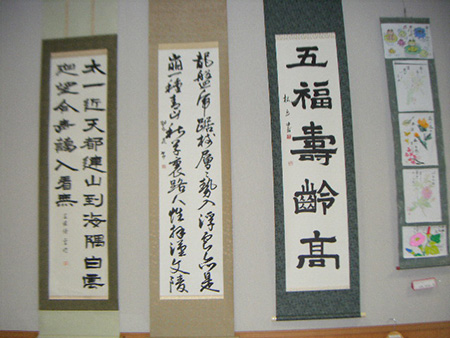 五福壽齡高
龍盤虎踞樹層〻勢入浮雲亦是
崩一種青山秋草裏路人惟拜漢文陵
太一近天都連山到海隅白雲
迴望合青靄入看無